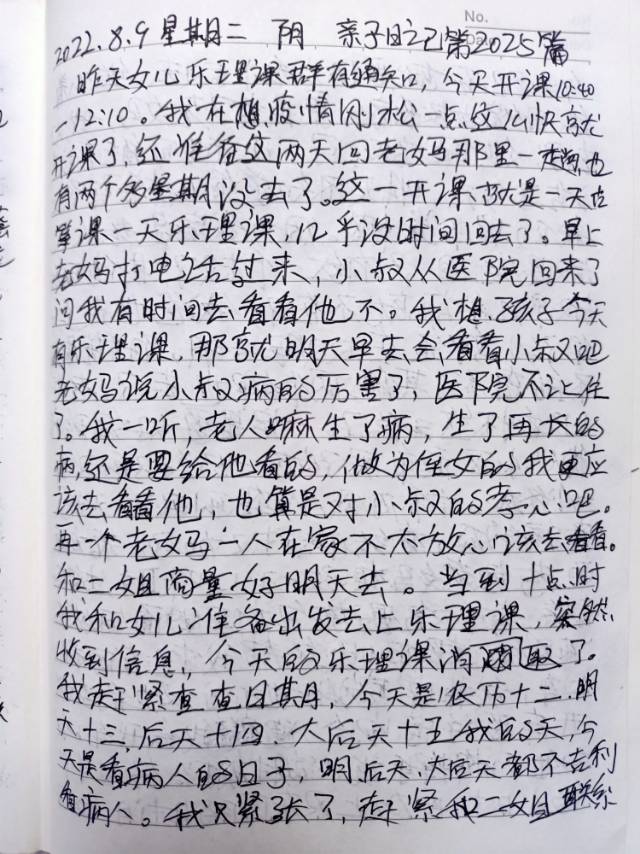 No.
2022.8.9 星期二 阴 亲子日记第2025篇
昨天女儿乐理课群有通知，今天开课10:40
-12:10。我在想疫情刚松一点这儿快就
开课了，还准备这两天回老妈那里一趟，也
有两个多星期没去了。这一开课就是一天古
筝课一天乐理课，几乎没时间回去了。早上
老妈打电话过来，小叔从医院回来了
问我有时间去看看他不。我想孩子今天
有乐理课，那就明天早去会看看小叔吧
老妈说小叔病的厉害了，医院不让住
了。我一听，老人嘛生了病，生了再长的
病，还是要给他看的，做为侄女的我更应
该去看看他，也算是对小叔的孝心吧。
再一个老妈一人在家不太放心该去看看。
和二姐商量好明天去。当到十点时
我和女儿准备出发去上乐理课，突然
收到信息，今天的乐理课消取了。
我赶紧查查日期，今天是农历十二，明
天十三，后天十四，大后天十五我的天，今
天是看病人的日子，明、后天、大后天都不吉利
看病人。我又紧张了，赶紧和二姐联系